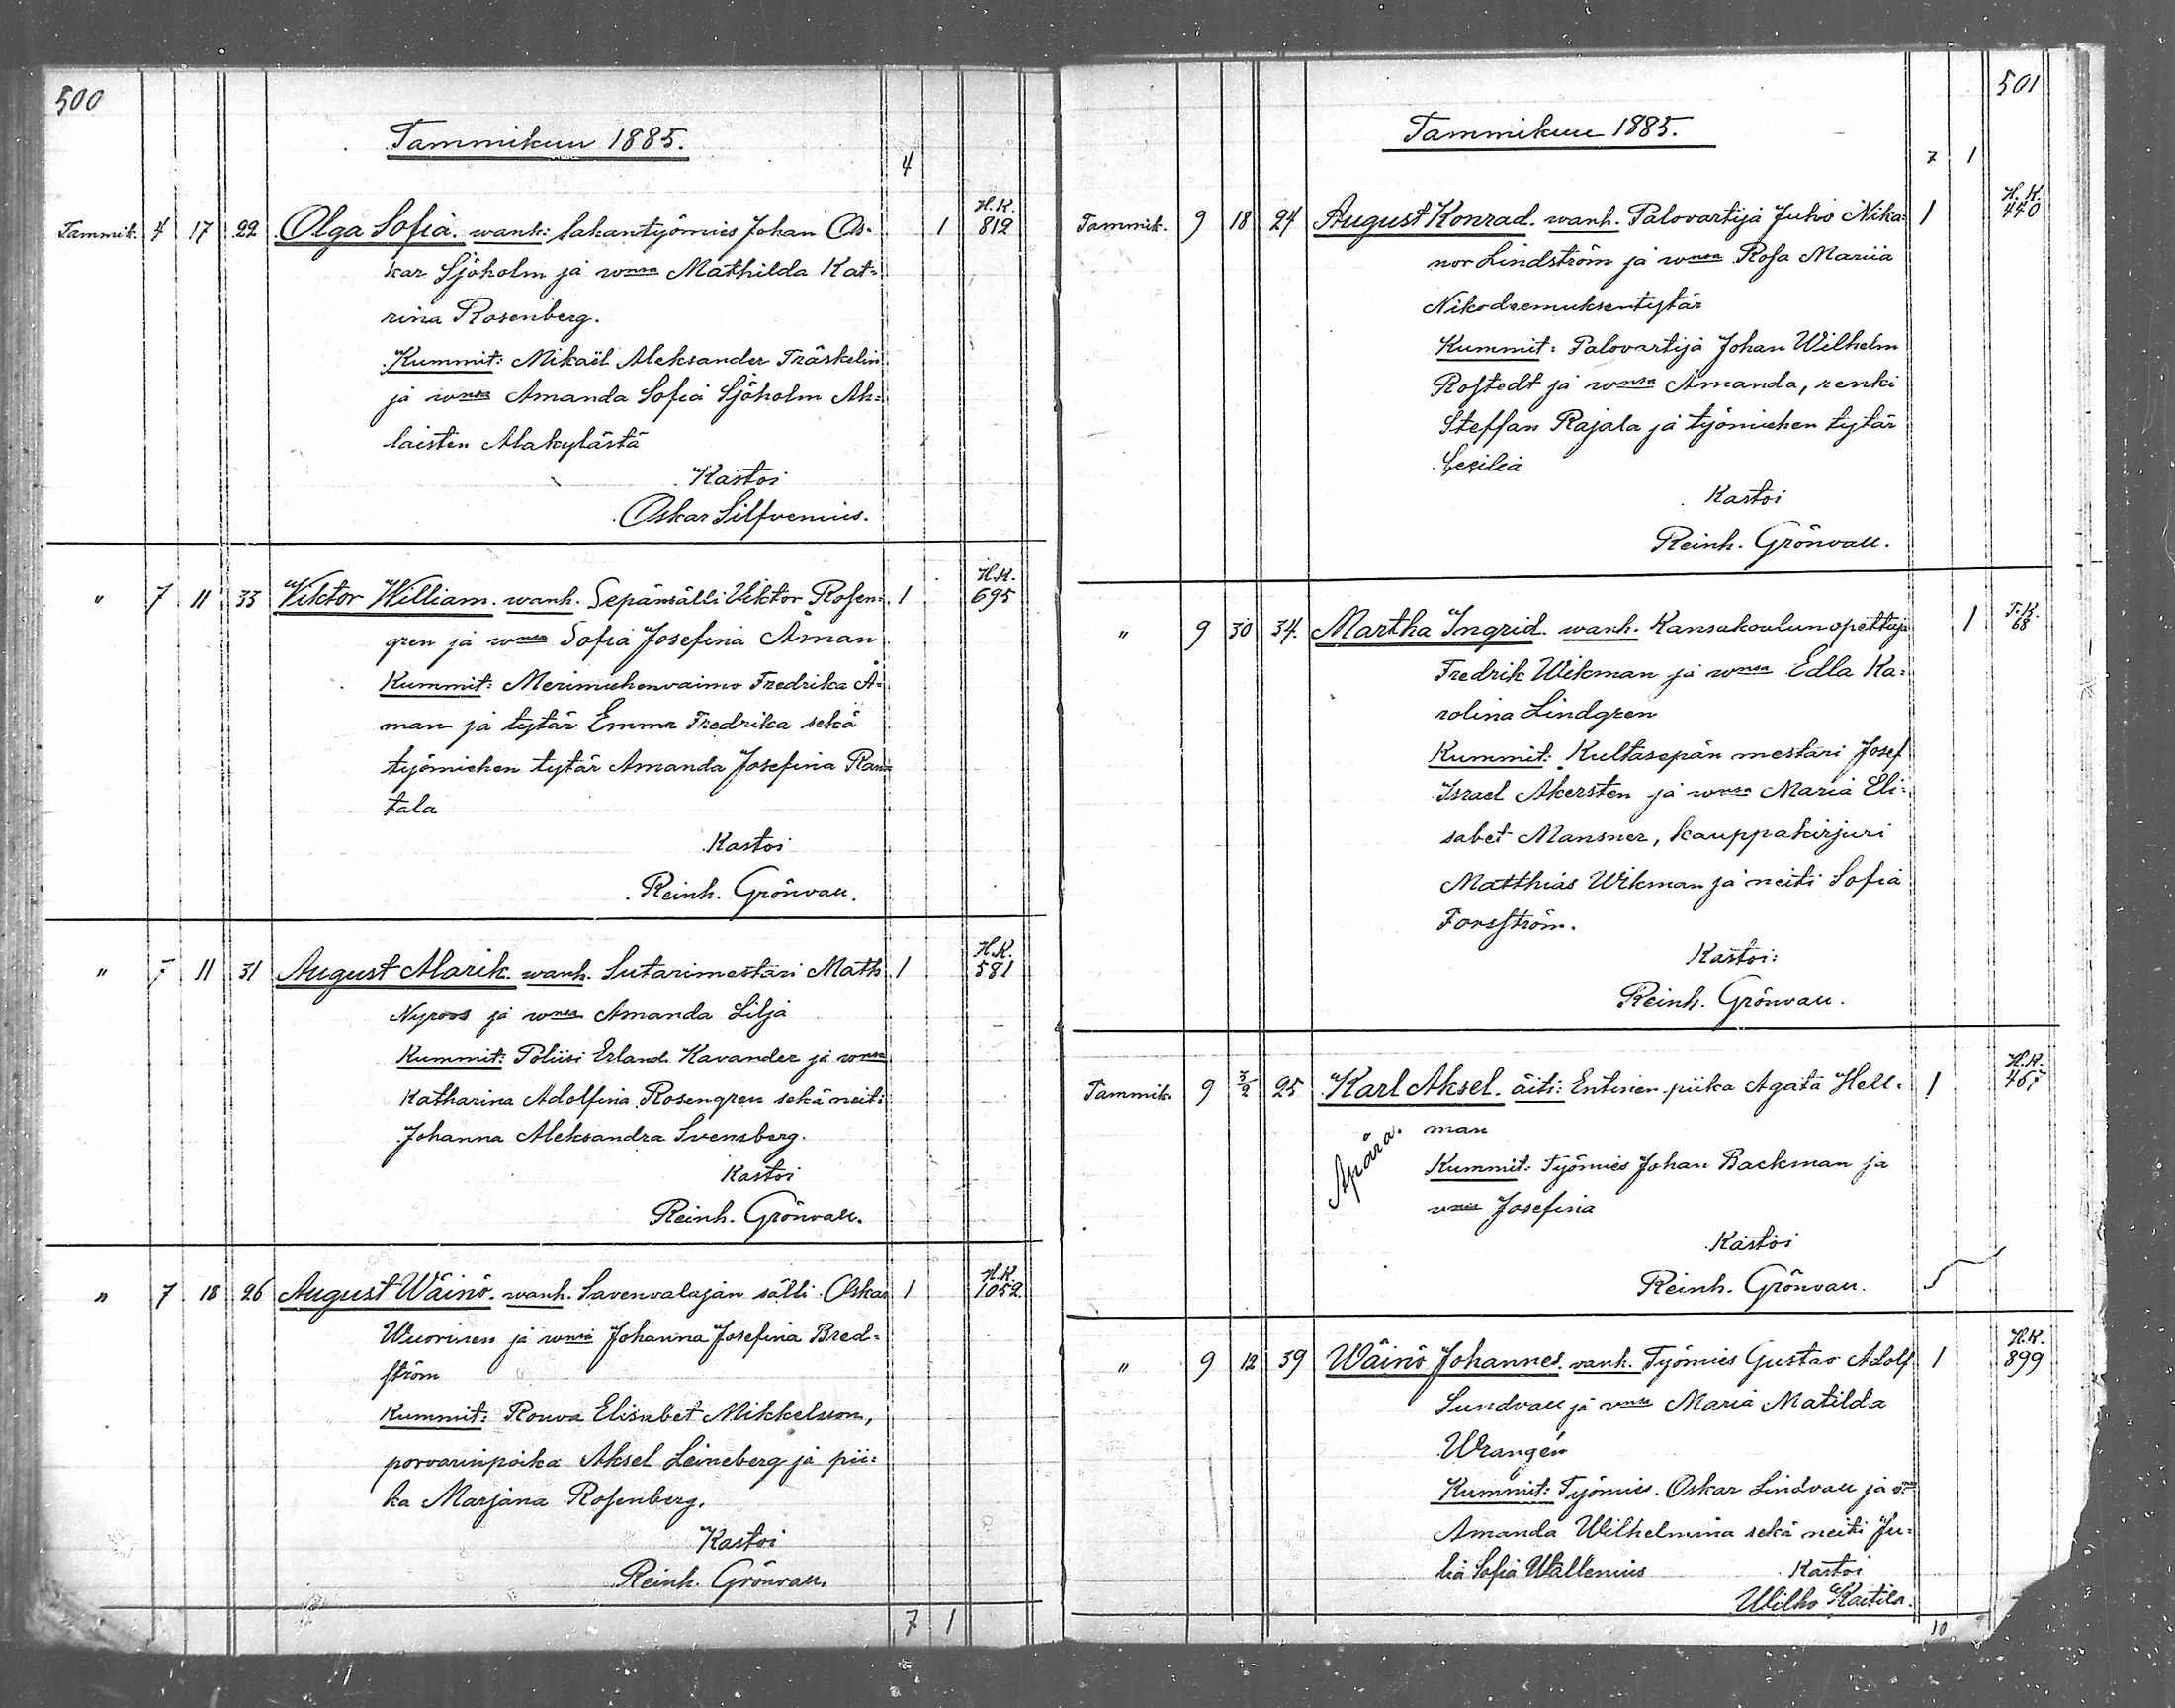 500
Tammikuu 1885.
4
Tammik. 4 17 22 Olga Sofia. wanh: Sahantyömies Johan Os- 1 H.K. 812
kar Sjöholm ja wnsa Mathilda Kat-
rina Rosenberg.
Kummit: Mikaël Aleksander Träskelin
ja wnsa Amanda Sofia Sjöholm Ah-
laisten Alakylästä
Kastoi
Oskar Silfvenius.
" 7 11 33 Viktor William. wanh. Sepänsälli Viktor Rosen- 1 H.K. 695
gren ja wnsa Sofia Josefina Åman
Kummit: Merimiehenvaimo Fredrika Å-
man ja tytär Emma Fredrika sekä
työmiehen tytär Amanda Josefina Ran-
tala
Kastoi
Reinh. Grönvall.
" 7 11 31 August Alarik. wanh. Sutarimestari Math 1 H.K. 581
Nyroos ja wnsa Amanda Lilja
Kummit: Poliisi Erland Kavander ja wnsa
Katharina Adolfina Rosengren sekä neiti
Johanna Aleksandra Svensberg.
Kastoi
Reinh. Grönvall.
" 7 18 26 August Wäinö. wanh. Savenvalajan sälli Oskar 1 H.K. 1052
Wuorinen ja wnsa Johanna Josefina Bred-
ström
Kummit: Rouva Elisabet Mikkelsson,
porvarinpoika Aksel Leineberg ja pii-
ka Marjana Rosenberg.
Kastoi
Reinh. Grönvall.
7 1
501
Tammikuu 1885.
7 1
Tammik. 9 18 24 August Konrad. wanh. Palovartija Juho Nika- 1 H.K. 440
nor Lindström ja wnsa Rosa Mariia
Nikodeemuksentytär
Kummit: Palovartija Johan Wilhelm
Rostedt ja wnsa Amanda, renki
Steffan Rajala ja työmiehen tytär
Cecilia
Kastoi
Reinh. Grönvall.
" 9 30 34. Martha Ingrid. wanh. Kansakoulunopettaja 1 T.K. 68
Fredrik Wikman ja wnsa Edla Ka-
rolina Lindgren
Kummit: Kultasepän mestari Josef
Israel Åkersten ja wnsa Maria Eli-
sabet Mansner, kauppakirjuri
Matthias Wikman ja neiti Sofia
Forsström.
Kastoi:
Reinh. Grönvall.
Tammik. 9 3/2 25 Karl Aksel. äiti: Entinen piika Agata Hell- 1 H.K. 467
man
Äpärä.
Kummit: Työmies Johan Backman ja
wnsa Josefina
Kastoi
Reinh. Grönvall.
" 9 12 39 Wäinö Johannes. vanh. Työmies Gustav Adolf 1 H.K. 899
Sundvall ja vnsa Maria Matilda
Wrangén
Kummit: Työmies Oskar Lindvall ja vnsa
Amanda Wilhelmina sekä neiti Ju-
lia Sofia Wallenius Kastoi
Wilho Kaitila.
10